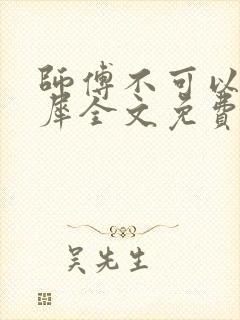 師傅不可以
犀全文免費
吳先生